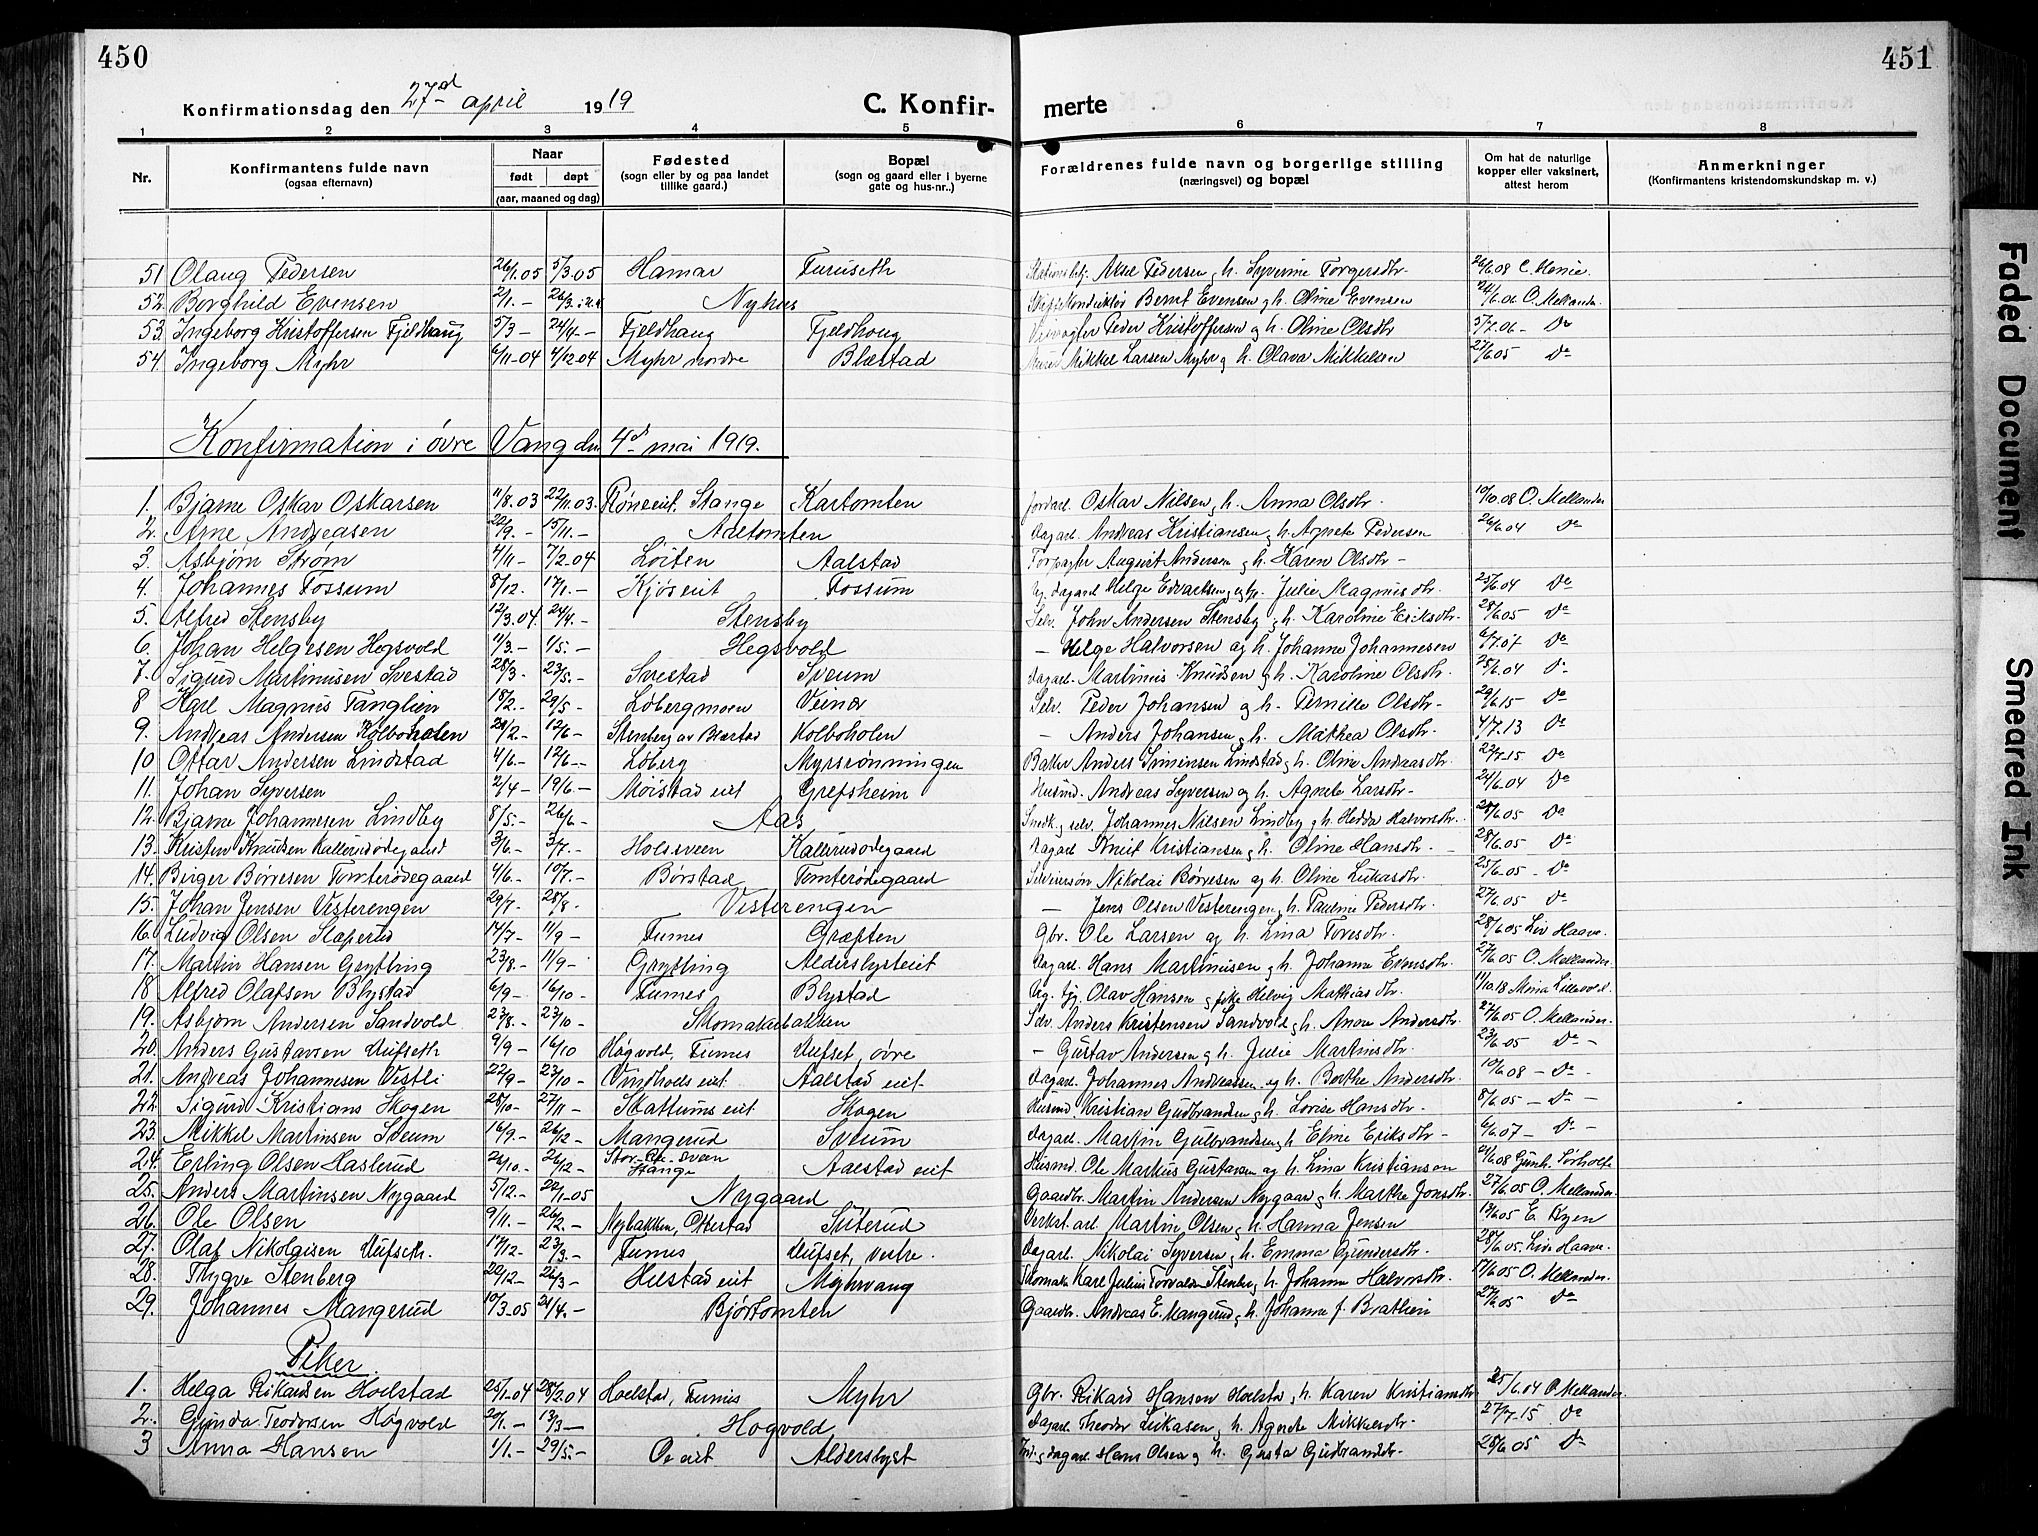 450
451
Konfirmationsdag den 27d april 1919
C. Konfir-
merte
1 2 3 4 5 6 7 8
Nr.
Konfirmantens fulde navn (ogsaa efternavn)
Naar født døpt (aar, maaned og dag)
Fødested (sogn eller by og paa landet tillike gaard.)
Bopæl (sogn og gaard eller i byerne gate og hus-nr..)
Forældrenes fulde navn og borgerlige stilling (næringsvei) og bopæl
Om hat de naturlige kopper eller vaksinert, attest herom
Anmerkninger (Konfirmantens kristendomskundskap m. v.)
51 Olaug Pedersen 26/1.05 5/3.05 Hamar Furuseth Aksel Pedersen og h. Syverine Torgersdtr. 26/6.08
52. Borghild Evensen 2/1. - Nyhus Bernt Evensen og h. Oline Evensen 24/6.06 O. Mellander
53. Ingeborg Kristoffersen Fjeldhaug 5/3 - 24/4. - Fjeldhaug Fjeldhoug Peder Kristoffersen og h. Oline Olsdtr 5/7.06 - Do
54. Ingeborg Myhr 6/11-04 4/12.04 Myhr nordre Blæstad Murer Mikkel Larsen Myhr og h. Olava Mikkelsen 27/6.05 Do
Konfirmation i øvre Vang den 4d mai 1919.
1. Bjarne Oskar Oskarsen 11/8.03 22/11.03. Stange Kartomten Jordarb. Oskar Nilsen og h. Anna Olsdtr. 10/10.08 O. Mellander
2. Arne Andreasen 22/9. - 15/11. - Aaltomten Dagarb. Andreas Kristiansen og h. Agnete Pedersen 26/6.04 Do
3. Asbjørn Strøm 4/11 - 7/2-04 Løiten Aalstad August Andersen og h. Karen Olsdtr -
4. Johannes Fossum 8/12. 17/1. - Kjøs eiet Fossum Helge Edvartsen og Julie Magnusdtr. 25/6.04 Do
5. Alfred Stensby 12/3.04. 24/4. - Stensby Selv. John Andersen Stensby og h. Karoline Eriksdtr. 28/6.05 Do
6. Johan Helgesen Hegsvold 11/3. - 1/5. - Hegsvold - Helge Halvorsen og h. Johanne Johannesen 6/7.07 Do
7. Sigurd Martinusen Svestad 28/3. 23/5. - Svestad Sveum Dagarb. Martinus Knudsen og h. Karoline Olsdtr. 25/6.04 Do
8 Karl Magnus Tanglien 18/2. - 29/5 - Løbergmoen Selv. Peder Johansen og h. Pernille Olsdtr - 29/6.15 Do
9. Andreas Andersen Kolboholen 29/2. - 12/6 - Stenberg av Blæstad Kolboholen - Anders Johansen og h. Mathea Olsdtr. 4/7.13 Do
10 Ottar Andersen Lindstad 4/6. - 12/6. - Løberg Myrsrønningen Baker Anders Simensen Lindstad og h. Oline Andreasdtr. 22/7.15 Do
11. Johan Syversen 2/4 - 19/6 - Møistad eiet Grefsheim Husmd. Andreas Syversen og h. Agnete Larsdtr. - 24/6.04 Do
12. Bjarne Johannesen Lindby 8/5. - 26/6. - Aas Snedk. og selv. Johannes Nilsen Lindby og h. Hedda Halvorsdtr. 28/6.05 Do
13. Kristen Knudsen Kallerudødegaard 3/6. - 3/7. - Holsveen Kallerudødegaard Dagarb. Knut Kristiansen og h. Oline Hansdtr. - 28/6.05 Do
14. Birger Børresen Tomterødegaard 4/6. 10/7. - Børstad Tomterødegaard Nikolai Børresen og h. Oline Lukasdtr. 25/6.05 - Do
15. Johan Jensen Vesterengen 29/7. 28/8. - Vesterengen - Jens Olsen Vesterengen og h. Pauline Pedersdtr. 27/6.05 Do
16. Ludvig Olsen Slaperud 14/7. - 11/9 - Furnes Græften Gbr. Ole Larsen og h. Lina Toresdtr. 28/6.05 Liv Haave.
17. Martin Hansen Grytting 23/8. - 11/9 - Grytting Alderslysteiet Dagarb. Hans Martinusen og h. Johanne Evensdtr. 27/6.05 O. Mellander
18 Alfred Olafsen Blystad 6/9 - 16/10 - Furnes Blystad Olav Hansen og Helvig Mathiasdtr. 1/10.18
19. Asbjørn Andersen Sandvold 23/8. - 23/10 - Skomakerbakken Selv. Anders Kristensen Sandvold og h. Anne Andersdtr. 27/6.05 O. Mellander
20. Anders Gustavsen Uufseth 9/9 - 16/10 Høgvold, Furnes Uufset, øvre - Gustav Andersen og h. Julie Martinsdtr. 23/6.05 Do -
21. Andreas Johannesen Vestli 22/9 - 23/10 - Aalstad eiet Dagarb. Johannes Andreassen og h. Berthe Andersdtr. 10/6.08 - Do -
22. Sigurd Kristians Skogen 28/10 - 27/11 - Skattums eiet Skogen Husmd. Kristian Gudbrandsen og h. Lovise Hansdtr. 8/6.05 - Do -
23. Mikkel Martinsen Sveum 16/9. - 26/12 - Mangerud Sveum Dagarb. Martin Gulbrandsen og h. Eline Eriksdtr - 6/6.07 - Do -
24. Erling Olsen Haslerud 26/10. - 26/12 - Stange Aalstad eiet Husmd. Ole Markus Gustavsen og h. Lina Kristiansen 21/6.08 Gunh. Sørholte
25. Anders Martinsen Nygaard 5/12. - 22/1-05 Nygaard Gaardbr. Martin Andersen Nygaard og h. Marthe Jonsdtr. 27/6.05 O. Mellander
26. Ole Olsen 9/11. - 26/2. - Nybakken, Ottestad Suterud Verkst. arb. Martin Olsen og h. Hanna Jensen 19/6.05 E. Ryen
27. Olaf Nikolaisen Uufseth. 17/12. - 23/3. - Furnes Uufset, vestre. Dagarb. Nikolai Syversen og h. Emma Gundersdtr. 28/6.05. Liv Haave.
28. Thygve Stenberg 20/12 - 26/3 - Helstad eiet Myhrvang Skomak. Karl Julius Torvaldsen Stenberg og h. Johanne Halvorsdtr. 17/6.05 O. Mellander
29. Johannes Mangerud 10/3-05 21/4. - Bjørtomten Gaardbr. Andreas E. Mangerud og h. Johanne J. Brathen 27/6.05 Do
Piker
1. Helga Rikardsen Hoelstad 25/1-04 28/2.04 Hoelstad, Furnes Myhr Gbr. Rikard Hansen Hoelstad og h. Karen Kristiansdtr. 25/6.04 O. Mellander
2. Gunda Teodorsen Høgvold 20/1. - 13/3 - Hogvold Dagarb. Theodor Lukasen og h. Agnete Mikkelsdtr. 27/7.15 Do
3 Anna Hansen 1/1. - 29/5. - Oe eiet Alderslyst Hans Olsen og h. Gusta Gudbrandsdtr. 28/6.05 Do
Faded Document
Smeared Ink